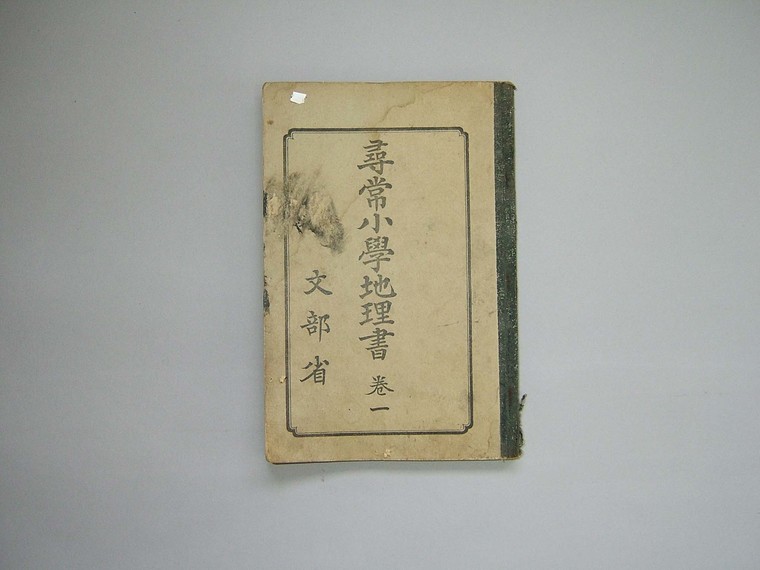 尋常小學地理書 卷一
文部省